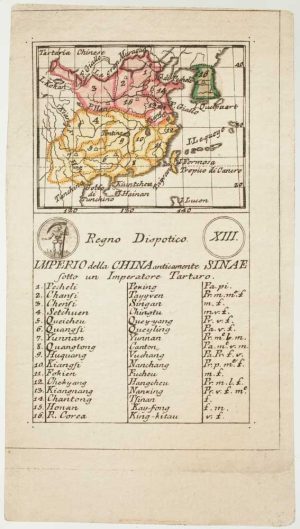 Tartaria Chinese
I. Quelpaert
I. Lequejo
I. Formosa
Tropico di Cancro
Golfo di Tunchino
I. Hainan
I. Luson
120
130
40
30
20
Regno Dispotico.
XIII.
IMPERIO della CHINA anticamente SINAE
sotto un Imperatore Tartaro.
1. Pecheli Peking Pa. pi.
2. Chansi Tayyven Pr. m. m. f
3. Chensi Singan m. f.
4. Setchuen Chingtu m. v. f.
5. Queicheu Queyyang Pr. v. f.
6. Quangsi Queyling Pa. v. f.
7. Yunnan Yunnan Pr. m. k. m.
8. Quangtong Canton Pa. m. v. m
9. Huquang Vuchang Pa. Pr. f. v.
10. Kiangsi Nanchang Pr. p. m. f.
11. Fokien Fucheu m. f.
12. Chekyang Hangcheu Pr. m. l. f.
13. Kiangnang Nanking Pr. v. f. m.
14. Chantong Tsinan f.
15. Honan Kayfong f. m.
16. R. Corea King-kitau v. f.